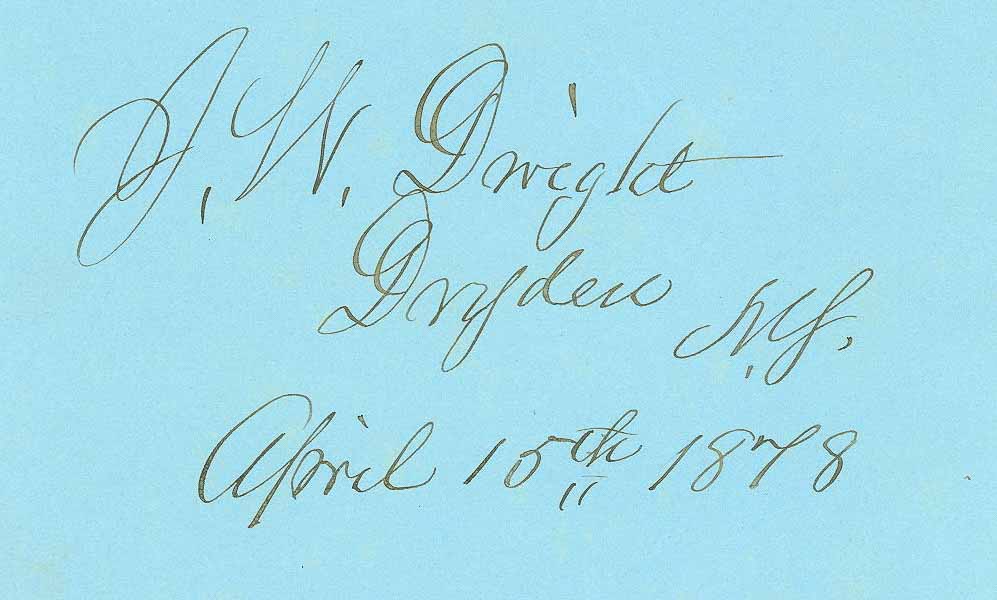 J. W. Dwight
Dryden N.Y.
April 15th 1878